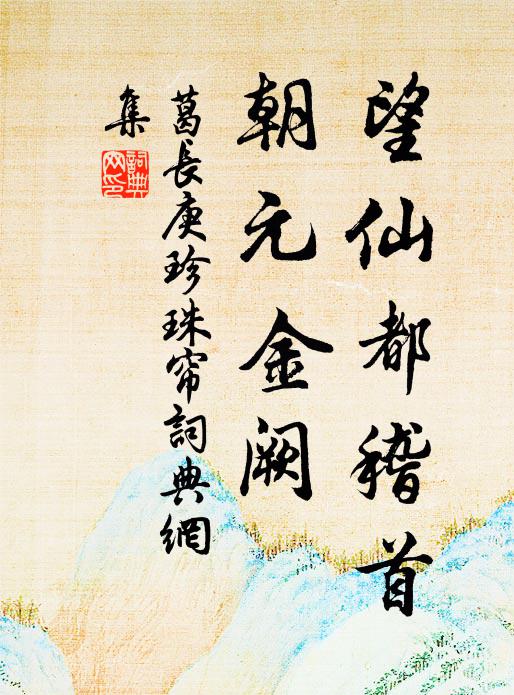 望仙都稽首
朝元金阙
葛長庚珍珠帘詞典網
集
詞典
网印